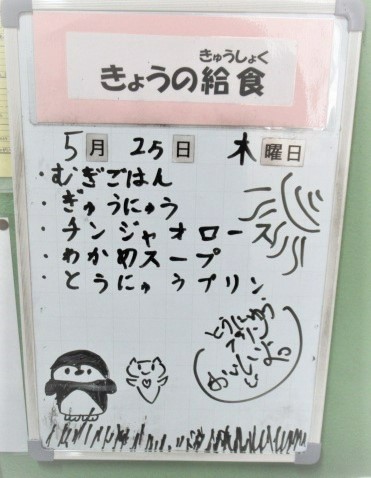 きゅうしょく
きょうの給食
5月 25日 木曜日
・むぎごはん
・ぎゅうにゅう
・チンジャオロース
・わかめスープ
・とうにゅうプリン
とうにゅう
プリン
おいしいよっ